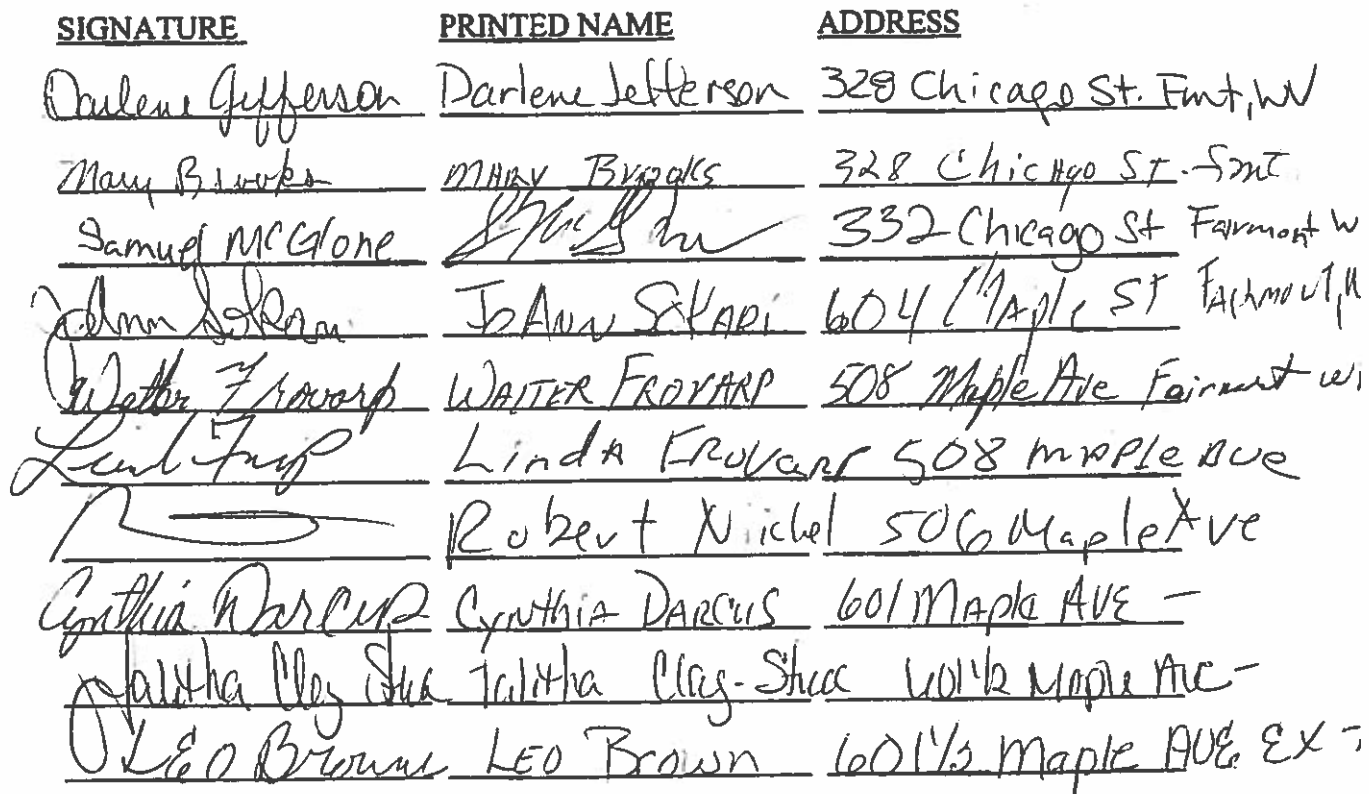 SIGNATURE PRINTED NAME ADDRESS
Darlene Jefferson Darlene Jefferson 328 Chicago St. Fmt, WV
Mary Brooks MARY Brooks 328 Chicago St. Fmt
Samuel McGlone 332 Chicago St Fairmont W
JoAnn JoAnn 604 Maple ST Fairmont, W
Walter Frovarp WALTER FROVARP 508 Maple Ave Fairmont WV
Linda FROVARP 508 MAPLE AVE
Robert Nichel 506 Maple Ave
Cynthia Darcus CYNTHIA DARCUS 601 MAPLE AVE -
Talitha Clay Talitha Clay- 601 1/2 Maple Ave -
LEO Brown LEO Brown 601 1/2 Maple AVE EX